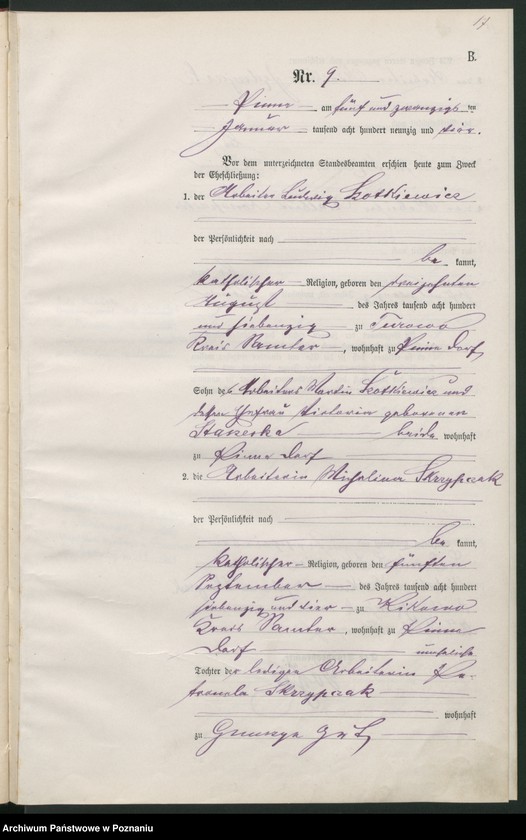 17
B.
Nr. 9.
Pinne am fünf und zwanzigs ten
Januar tausend acht hundert neunzig und vier.
Vor dem unterzeichneten Standesbeamten erschien heute zum Zweck
der Eheschließung:
1. der Arbeiter Ludwig Szotkiewicz
der Persönlichkeit nach
be kannt,
katholischer Religion, geboren den dreizehnten
August des Jahres tausend acht hundert
und siebenzig zu Turowo
Kreis Samter, wohnhaft zu Pinne Dorf
Sohn des Arbeiters Martin Szotkiewicz und
dessen Ehefrau Victoria geborenen
beide wohnhaft
zu Pinne Dorf
2. die Arbeiterin Michalina Skrzypczak
der Persönlichkeit nach
be kannt,
katholischer Religion, geboren den fünften
September des Jahres tausend acht hundert
siebenzig und vier zu Kikowo
Kreis Samter, wohnhaft zu Pinne
Dorf uneheliche
Tochter der ledigen Arbeiterin Pe-
tronela Skrzypczak
wohnhaft
zu Gut
Archiwum Państwowe w Poznaniu